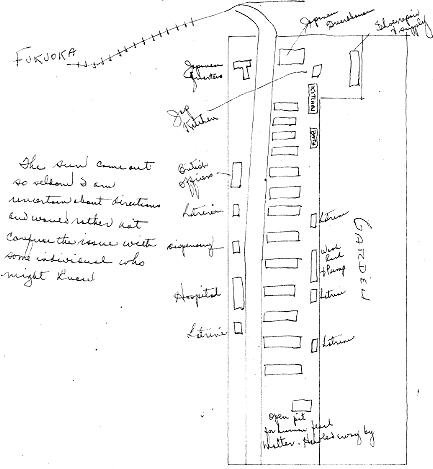 FUKUOKA
Japanese
Guardhouse
Shoe repair
& supply
Japanese
Quarters
Jap
Kitchen
British
officers
Latrine
Hospital
Latrine
The sun came out
so seldom I am
uncertain about directions
and would rather not
confuse the issue with
some individual who
might know
Latrine
Wash
Rack
& Pump
Latrine
Latrine
GARDEN
Open pit
for human fecal
Matter. Hauled away by